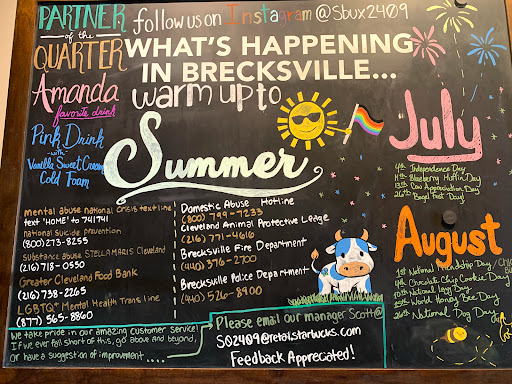 PARTNER
of the
QUARTER
Amanda
favorite drink
Pink Drink
with
Vanilla Sweet Cream
Cold Foam
follow us on Instagram @Sbux2409
WHAT'S HAPPENING
IN BRECKSVILLE...
warm up to
Summer
mental abuse national crisis text line
text "HOME" to 741741
national Suicide prevention
(800) 273-8255
Substance abuse STELLAMARIS Cleveland
(216) 718-0550
Greater Cleveland Food Bank
(216) 738-2265
LGBTQ+ Mental Health Trans line
(877) 565-8860
Domestic Abuse Hotline
(800) 799-7233
Cleveland Animal Protective League
(216) 771-4616
Brecksville Fire Department
(440) 376-2700
Brecksville Police Department
(440) 526-8900
We take pride in our amazing customer service!
If we ever fall short of this, go above and beyond,
or have a suggestion of improvement....
Please email our manager Scott@
S02409@retail.starbucks.com
Feedback Appreciated!
July
4th Independence Day
11th Blueberry Muffin Day
13th Cow Appreciation Day
26th Bagel Fest Day!
August
1st National Friendship Day
4th Chocolate Chip Cookie Day
10th National Lazy Day
20th World Honey Bee Day
26th National Dog Day